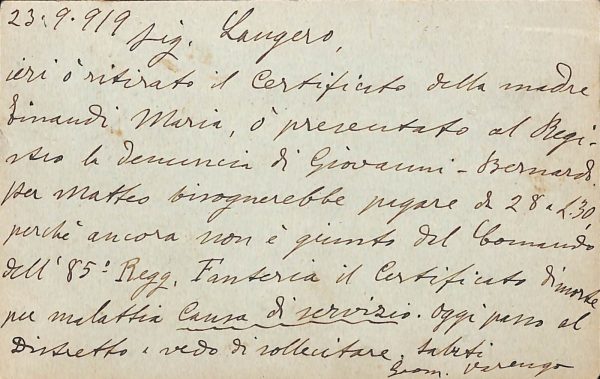 23.9.919
Sig. Laugero,
ieri ò ritirato il Certificato della madre
Einaudi Maria, ò presentato al Regi-
stro la denuncia di Giovanni-Bernardi.
per Matteo bisognerebbe pagare da 28 a £30,
perchè ancora non è giunto dal Comando
dell'85º Regg. Fanteria il Certificato di morte
per malattia Causa di servizio. Oggi passo al
Distretto e vedo di sollecitare. Saluti
Geom. Varengo